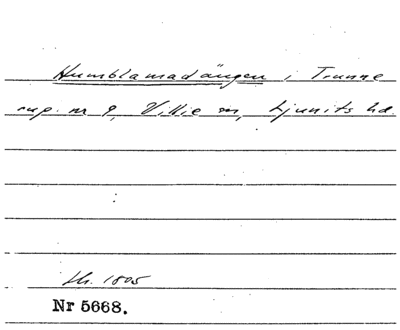 Humblamadängen i Trunne
rup. nr 9, Villie sn, Ljunits hd.
Lh. 1805
Nr 5668.